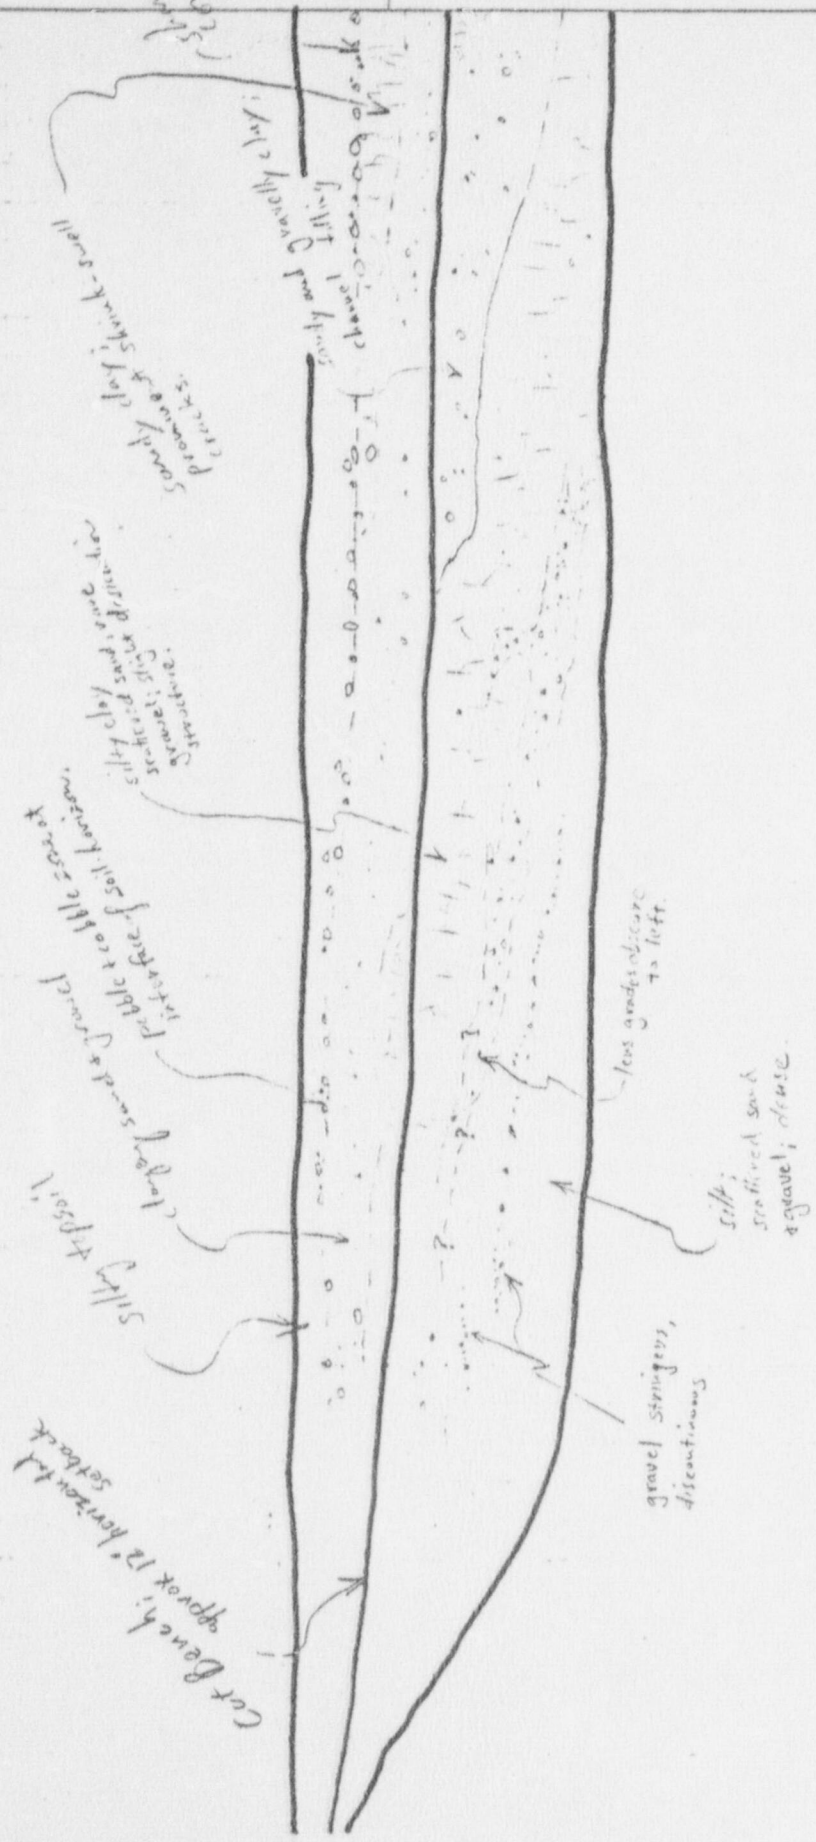 Cut Bench;
approx 12' horizontal
setback
silty topsoil
clayey sand & gravel
pebble + cobble zone at
interface of soil horizon.
silty clay
scattered sand, some
gravel; slight
structure.
sandy clay;
prominent shrink-swell
cracks.
sandy and gravelly clay;
channel filling
gravel stringers,
discontinuous
silt;
scattered sand
& gravel; dense
lens grades obscure
to left.
?
?
?